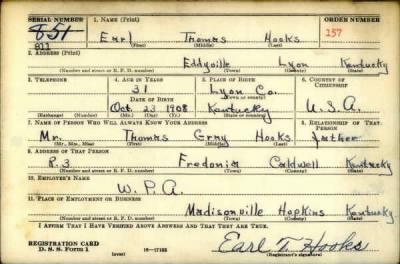 SERIAL NUMBER
1. NAME (Print)
ORDER NUMBER
851
811
Earl Thomas Hooks
157
(First) (Middle) (Last)
2. ADDRESS (Print)
Eddyville Lyon Kentucky
(Number and street or R. F. D. number) (Town) (County) (State)
3. TELEPHONE
4. AGE IN YEARS
5. PLACE OF BIRTH
6. COUNTRY OF CITIZENSHIP
31
Lyon Co.
DATE OF BIRTH
(Town or county)
Oct 23 1908
Kentucky
U.S.A.
(Exchange) (Number)
(Mo.) (Day) (Yr.)
(State or country)
7. NAME OF PERSON WHO WILL ALWAYS KNOW YOUR ADDRESS
8. RELATIONSHIP OF THAT PERSON
Mr. Thomas Gray Hooks
father
(Mr., Mrs., Miss) (First) (Middle) (Last)
9. ADDRESS OF THAT PERSON
R.3 Fredonia Caldwell Kentucky
(Number and street or R. F. D. number) (Town) (County) (State)
10. EMPLOYER'S NAME
W. P. A.
11. PLACE OF EMPLOYMENT OR BUSINESS
Madisonville Hopkins Kentucky
(Number and street or R. F. D. number) (Town) (County) (State)
I AFFIRM THAT I HAVE VERIFIED ABOVE ANSWERS AND THAT THEY ARE TRUE.
REGISTRATION CARD
D. S. S. Form 1
(over)
16-17105
Earl T. Hooks
(Registrant's signature)